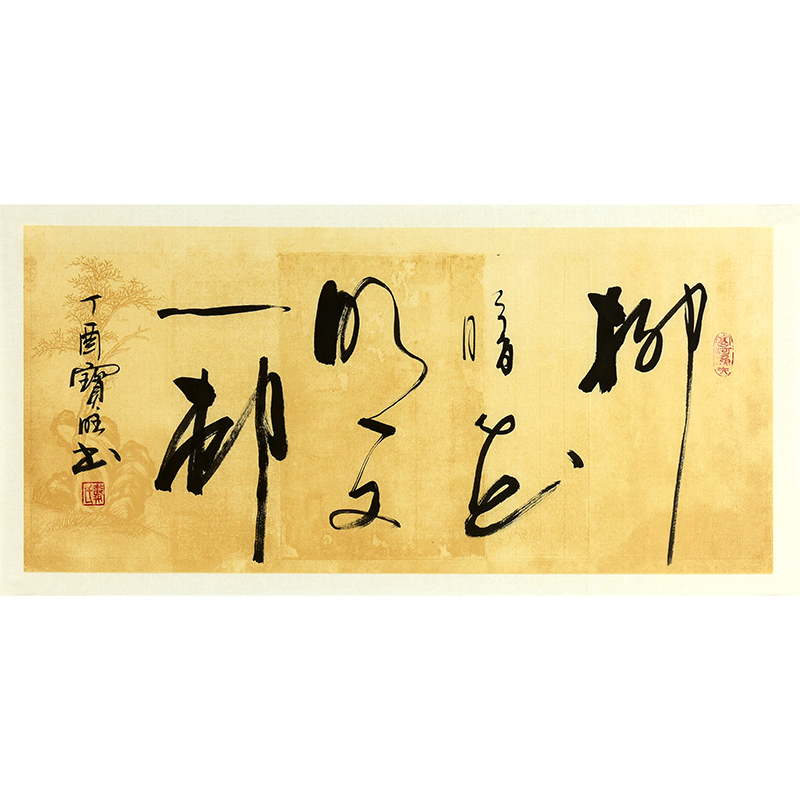 柳
暗花
明又
一邨
丁酉寶旺书